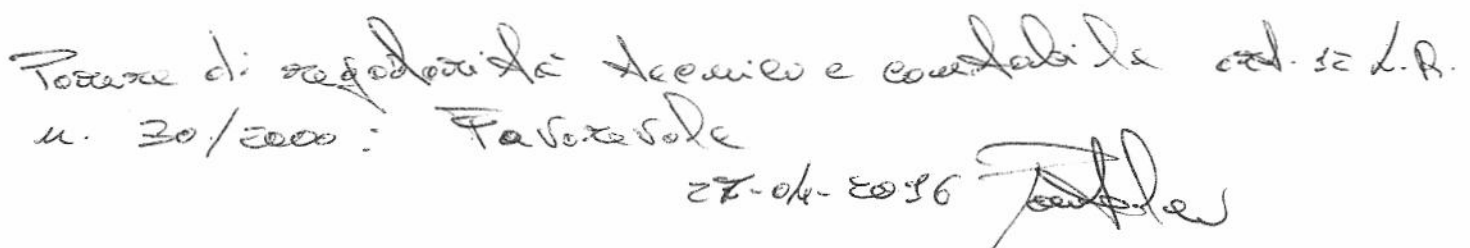 Parere di regolarità tecnica e contabile art. 12 L.R.
n. 30/2000: Favorevole
27-04-2016